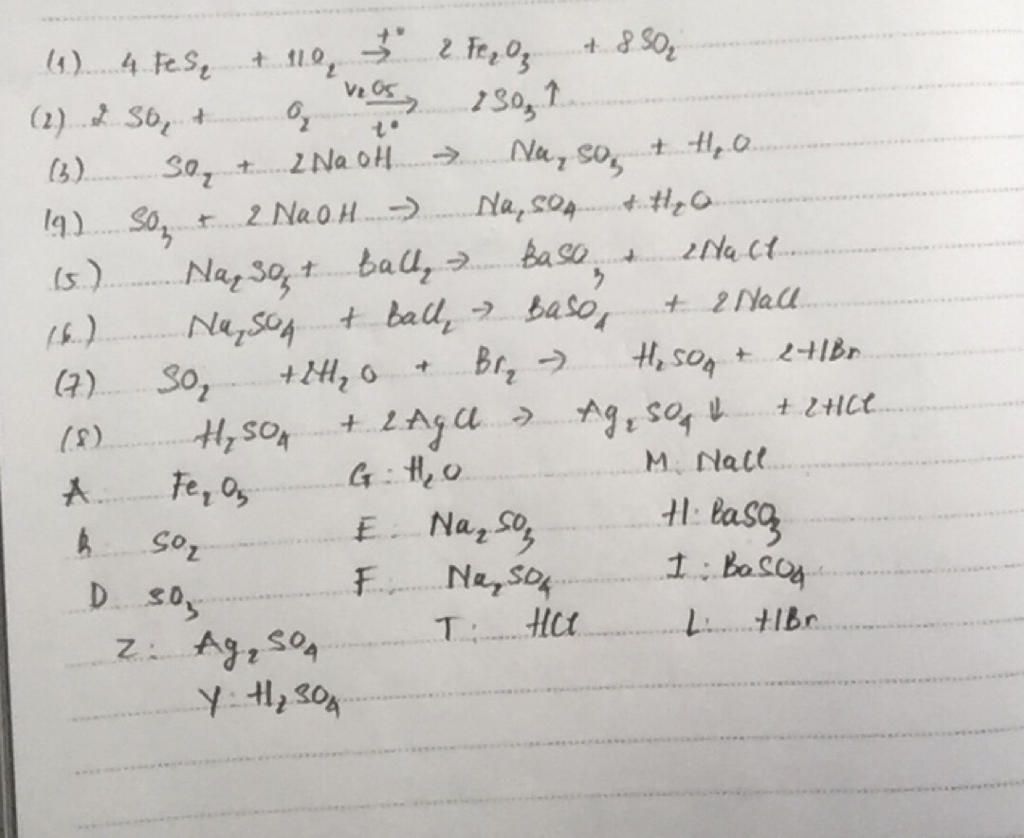 (1) 4 FeS₂ + 11O₂ →(t°) 2 Fe₂O₃ + 8SO₂
(2) 2 SO₂ + O₂ →(V₂O₅, t°) 2SO₃ ↑
(3) SO₂ + 2NaOH → Na₂SO₃ + H₂O
(4) SO₃ + 2NaOH → Na₂SO₄ + H₂O
(5) Na₂SO₃ + BaCl₂ → BaSO₃ + 2NaCl
(6) Na₂SO₄ + BaCl₂ → BaSO₄ + 2NaCl
(7) SO₂ + 2H₂O + Br₂ → H₂SO₄ + 2HBr
(8) H₂SO₄ + 2AgCl → Ag₂SO₄ ↓ + 2HCl
A. Fe₂O₃ G: H₂O M. NaCl
B SO₂ E. Na₂SO₃ H: BaSO₃
D SO₃ F. Na₂SO₄ I: BaSO₄
Z: Ag₂SO₄ T: HCl L: HBr
Y: H₂SO₄